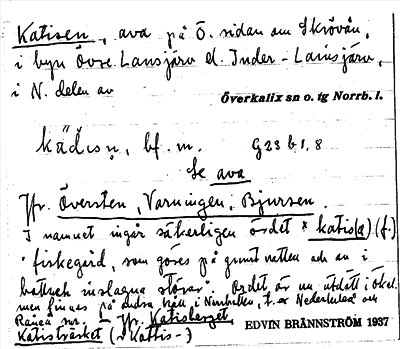 Katisen, ava på Ö. sidan om Skrövån,
i byn Övre Lansjärv el. Inder-Lansjärv,
i N. delen av
Överkalix sn o. tg Norrb. l.
bf. m. G 23 b 1, 8
Se ava
Jfr. Översten, Varningen, Bjursen.
I namnet ingår säkerligen ordet × katis(a) (f.)
'fiskegård, som göres på grunt vatten och av i
bottnen inslagna störar'. Ordet är nu utdött i Ökal.
men finnes på andra håll i Norrbotten, t. ex. Nederluleå och
Råneå snr. – Jfr. Katisberget,
Katisträsket (~ Kattis-)
EDVIN BRÄNNSTRÖM 1937